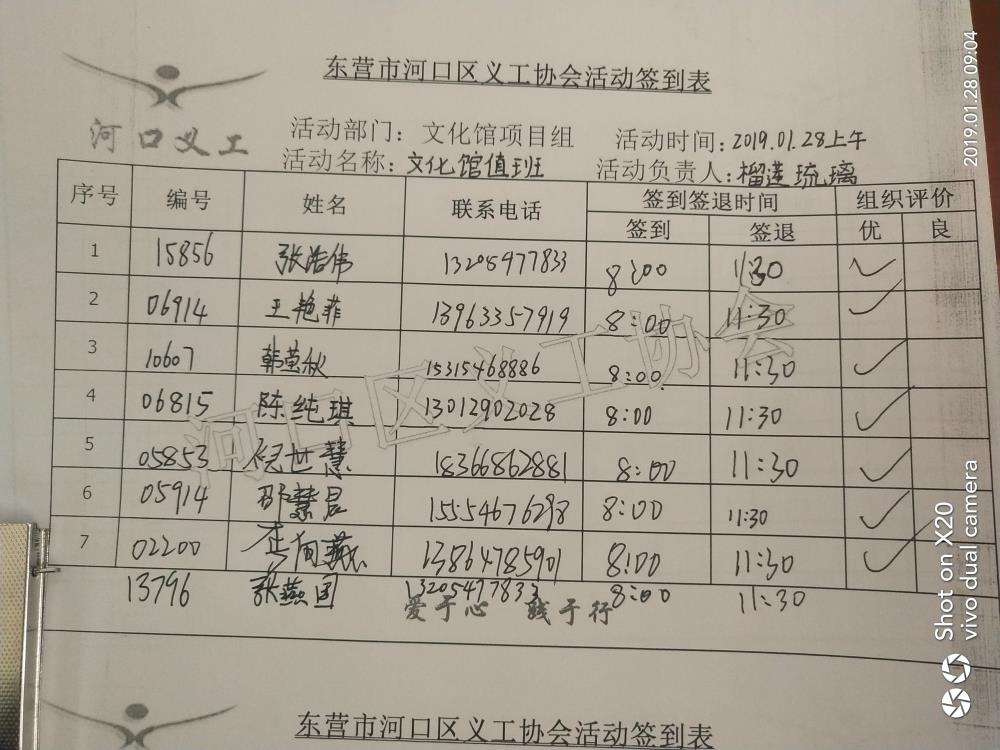 东营市河口区义工协会活动签到表
河口义工
活动部门：文化馆项目组 活动时间：2019.01.28上午
活动名称：文化馆值班 活动负责人：榴莲琉璃
序号 编号 姓名 联系电话 签到签退时间 组织评价
签到 签退 优 良
1 15856 张浩伟 13205477833 8:00 11:30 ✓
2 06914 王艳菲 13963357919 8:00 11:30 ✓
3 10607 韩萤秋 15315468886 8:00 11:30 ✓
4 06815 陈纯琪 13012902028 8:00 11:30 ✓
5 05853 倪世慧 18366862881 8:00 11:30 ✓
6 05914 邵慧晨 15554676298 8:00 11:30 ✓
7 02200 李向燕 13864785901 8:00 11:30 ✓
13796 张燕国 13205477833 8:00 11:30
爱于心 践于行
河口区义工协会
东营市河口区义工协会活动签到表
2019.01.28 09:04
Shot on X20
vivo dual camera